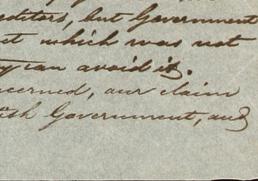 editors, but Government
which was not
can avoid it.
cerned, our claim
ish Government, and